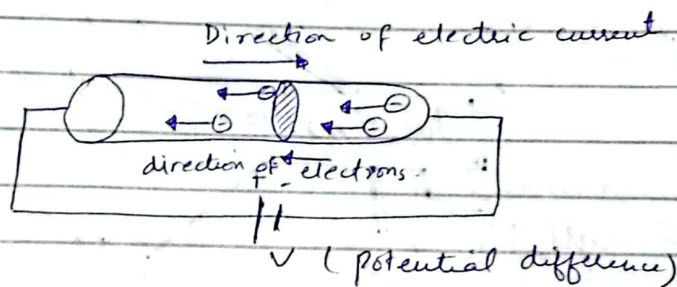 Direction of electric current
direction of electrons.
+ -
V (potential difference)